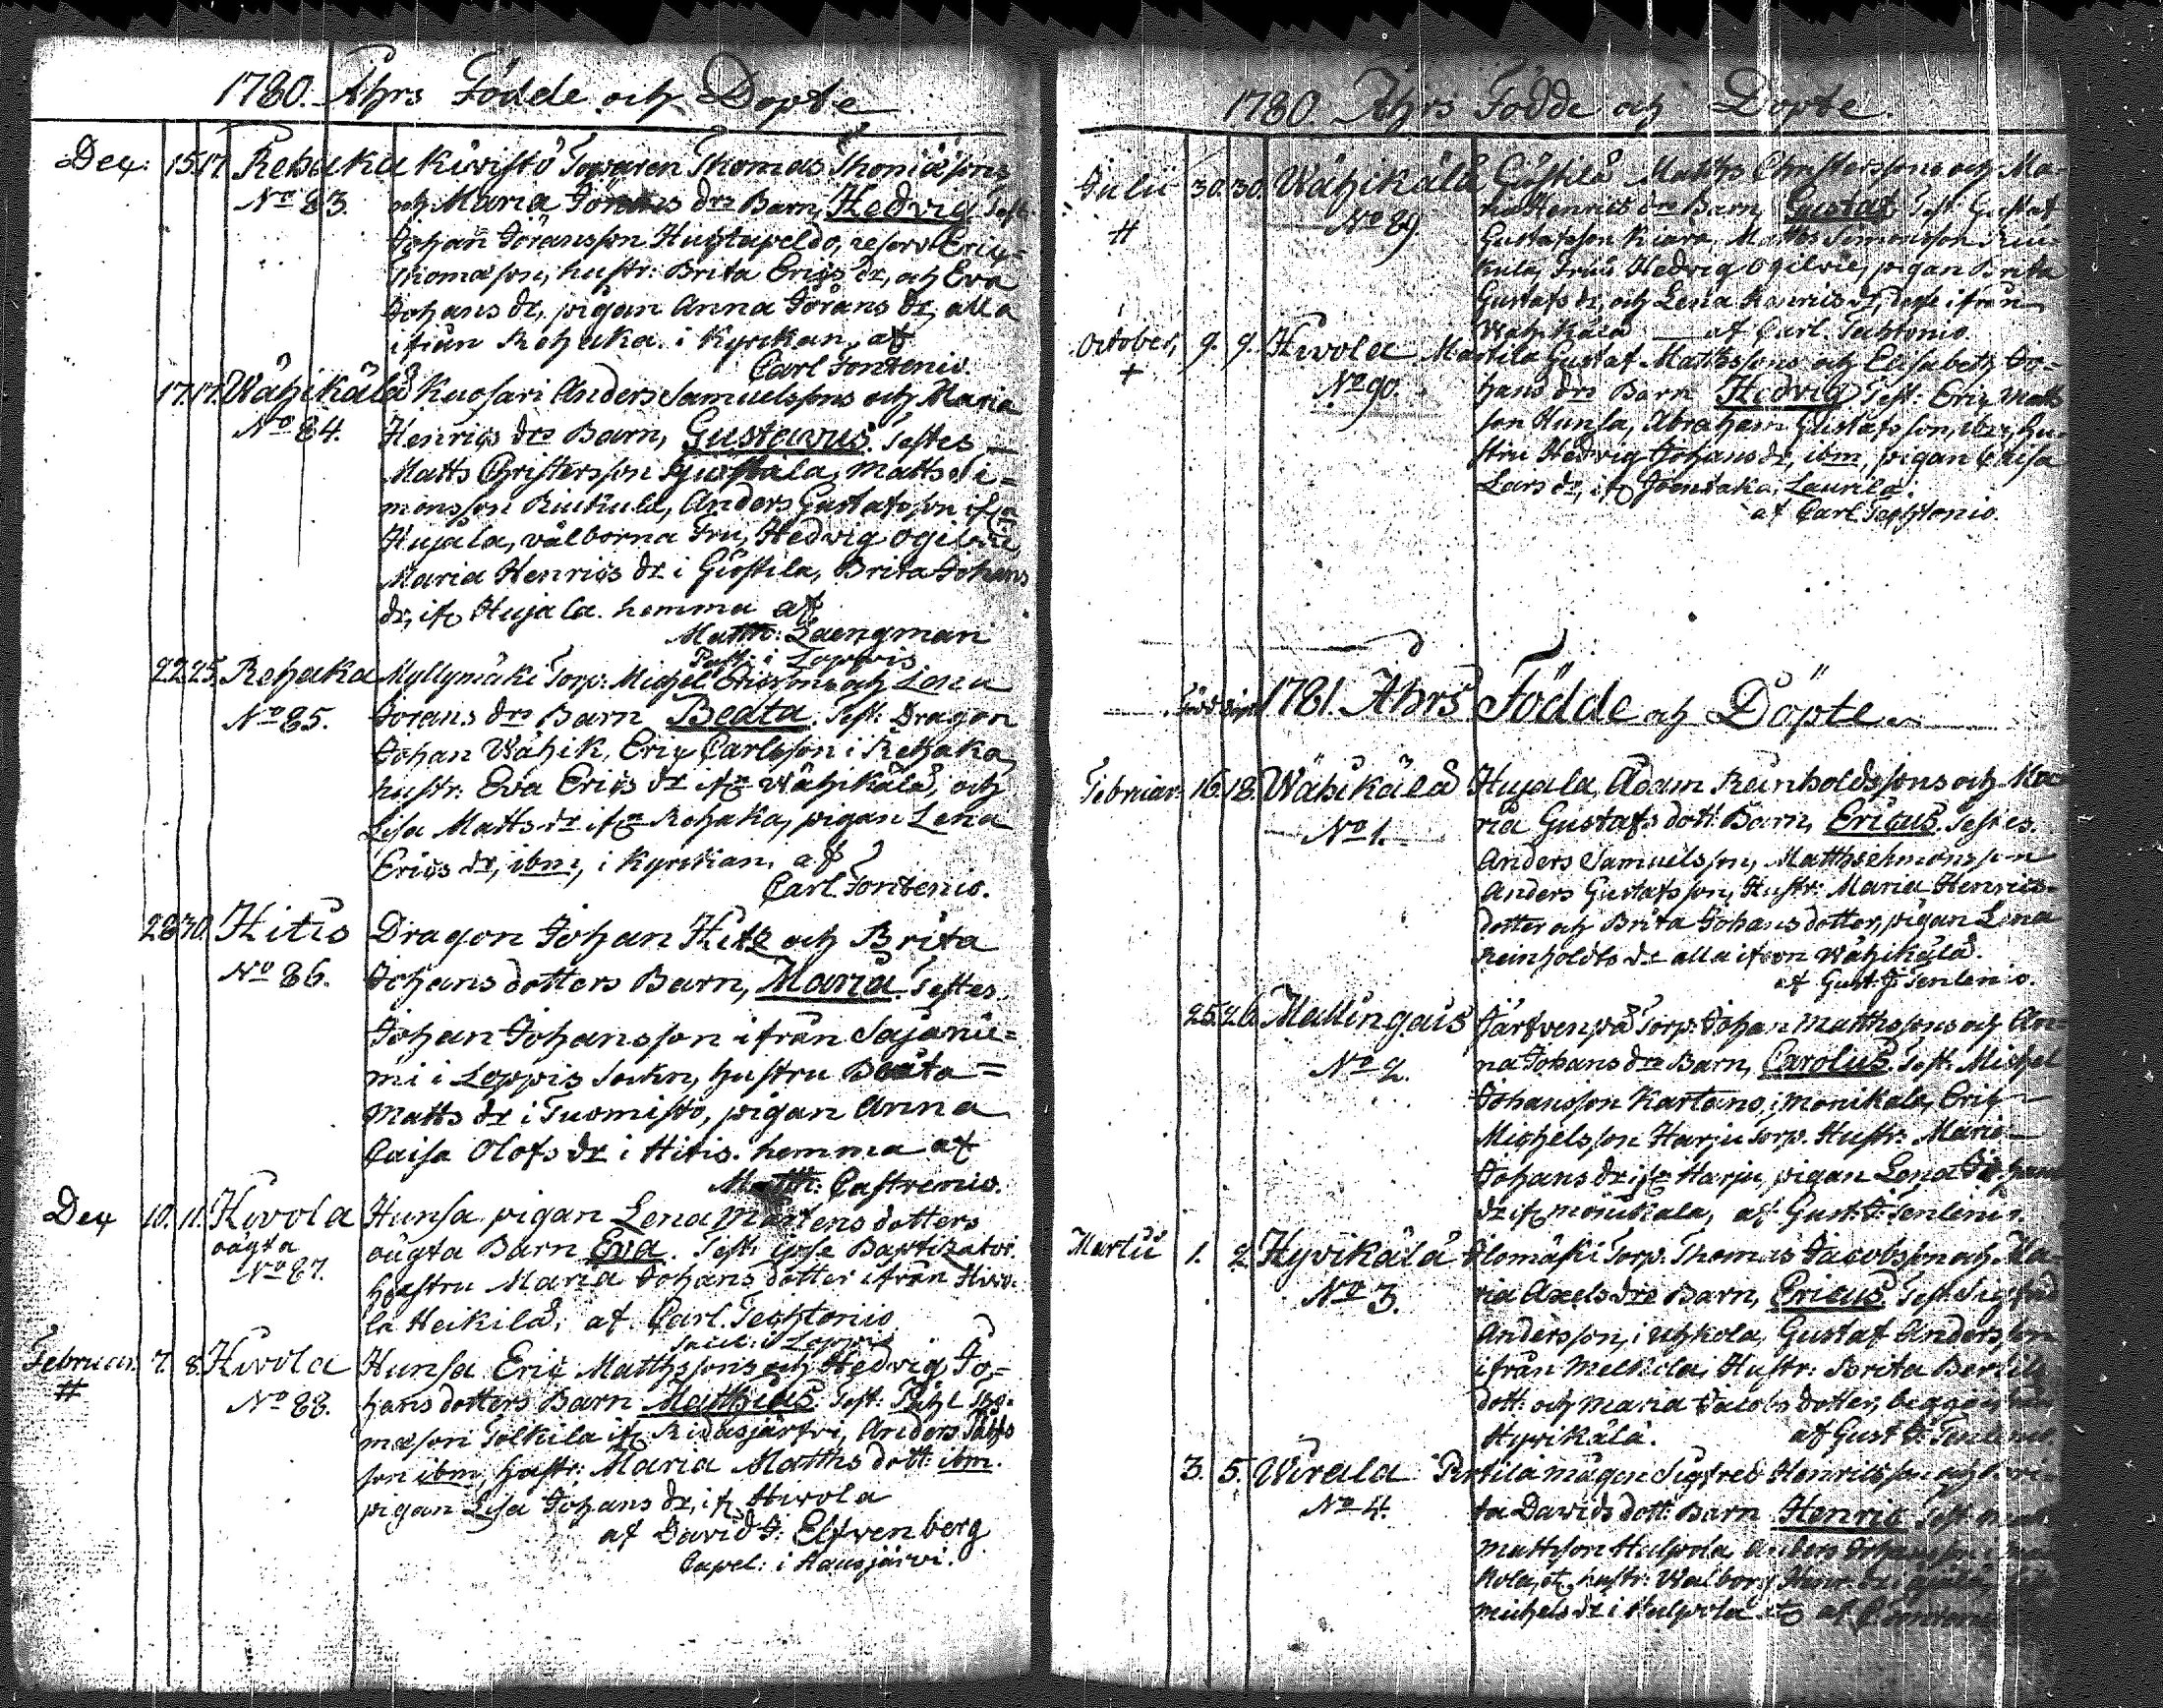 1780. Åhrs Födde och Döpte
Dec: 15. 17. Rehaka Kivistö Torparen Thomas Thomæsons
No 83. och Maria Görans drs Barn, Hedvig Test:
Johan Göransson Huhtapeldo, reserv Eric
Thomæson, hustr: Brita Erics dr, och Eva
Johans dr, pigan Anna Görans dr, alla
ifrån Rehaka. i Kyrkan, af
Carl Fontenio.
17. 17. Wähikälä Kuosari Anders Samuelssons och Maria
No 84. Henrics drs Barn, Gustavus. Testes
Matts Christersson Matts Si=
monsson Anders Gustafsson if
Hujala, välborna Fru, Hedvig Ogilvie
Maria Henrics dr i Giöstilä, Brita Johans
dr, if Hujala. hemma af
Matth: Laengman
Past: i Loppis
22. 25. Rehaka Myllymäki Torp: Michel Ericsons och Lena
No 85. Görans drs Barn Beata. Test: Dragon
Johan Wähik, Eric Carlsson i Rehaka,
hustr: Eva Erics dr if Wähikälä, och
Lisa Matts dr if Rehaka, pigan Lena
Erics dr, ibm, i Kyrkian, af
Carl Fontenio.
28 30. Hitis Dragon Johan Hitz och Brita
No 86. Johans dotters Barn, Maria. Testes
Johan Johansson ifrån Sajanie=
mi i Loppis Sockn, hustru Beata
Matts dr i Tuomisto, pigan Anna
Caisa Olofs dr i Hitis. hemma af
Matth: Castrenio.
Dec 10. 11. Hivola Hunsa pigan Lena Mårtens dotters
oägta oägta Barn Eva. Test: ipse Baptizator.
No 87. hustru Maria Johans dotter ifrån Hivo-
la Heikilä, af Carl. Techtonio
Sacell: i Loppis
Februar. 7. 8. Hivola Hunsa Eric Matthssons och Hedvig Jo=
# No 88. hans dotters Barn Matthias. Test: Påhl Tho-
mæson Tolkila if Ridasjärfvi, Anders Påhls
son ibm, hustr: Maria Matths dott: ibm.
pigan Lisa Johans dr, if Hivola
af David J. Elfvenberg
Capel: i Hausjärvi.
1780. Åhrs Födde och Döpte.
Julii 30. 30. Wähikälä Giöstilä Matths Christerssons och Ma-
# No 89. ria Henrics drs Barn, Gustaf, Test: Gustaf
Gustafsson Kiara, Matths Simonsson Riu-
kula, Frus Hedvig Ogilvie, pigan Brita
Gustafs dr, och Lena Henrics dr, ifrån
Wähikälä af Carl. Techtonio.
October, 9. 9. Hivola Martila Gustaf Matthssons och Elisabeth Jo-
+ No 90. hans drs Barn Hedvig Test: Eric Matts
son Hunsa, Abraham Gustafsson, ibm, hu-
stru Hedvig Johans dr, ibm, pigan Caisa
Lars dr, if Joentaka, Laurila.
af Carl Techtonio.
född döpt 1781. Åhrs Födde och Döpte
Februar: 16. 18. Wähikälä Hujala, Adam Reinholdssons och Ma-
No 1. ria Gustafs dott: Barn, Ericus. Testes.
Anders Samuelsson, Matths Simonsson
Anders Gustafsson, Hustr: Maria Henrics-
dotter och Brita Johans dotter, pigan Lena
Reinholdts dr alla ifrån Wähikälä.
af Gust: J: Tenlenio.
25. 26. Mallingais Järfvenpä Torp: Johan Matthssons och An-
No 2. na Johans drs Barn, Carolus. Test: Michel
Johansson Kartano, i Monikala, Eric
Michelsson Harju Torp. Hustr: Maria
Johans dr if Harju, pigan Lena Johans
dr if Monikala, af Gust: J: Tenlenio.
Martii 1. 2. Hyvikälä Ilomäki Torp. Thomas Jacobsson och Ma-
No 3. ria Axels drs Barn, Ericus Test: Sigfrid
Andersson, i Uhkola, Gustaf Andersson
ifrån Melkola, Hustr: Brita Bertils
dott: och Maria Jacobs dotter, begge ifrån
Hyvikälä. af Gust J: Tenlenio.
3. 5. Wirala Pertilä mågen Sigfred Henricsson och Bri-
No 4. ta Davids dott: Barn Henric Test:
Mattsson Hulpola, Anders Johansson
kola, hustr: Walborg
Michels dr i Hulpola af